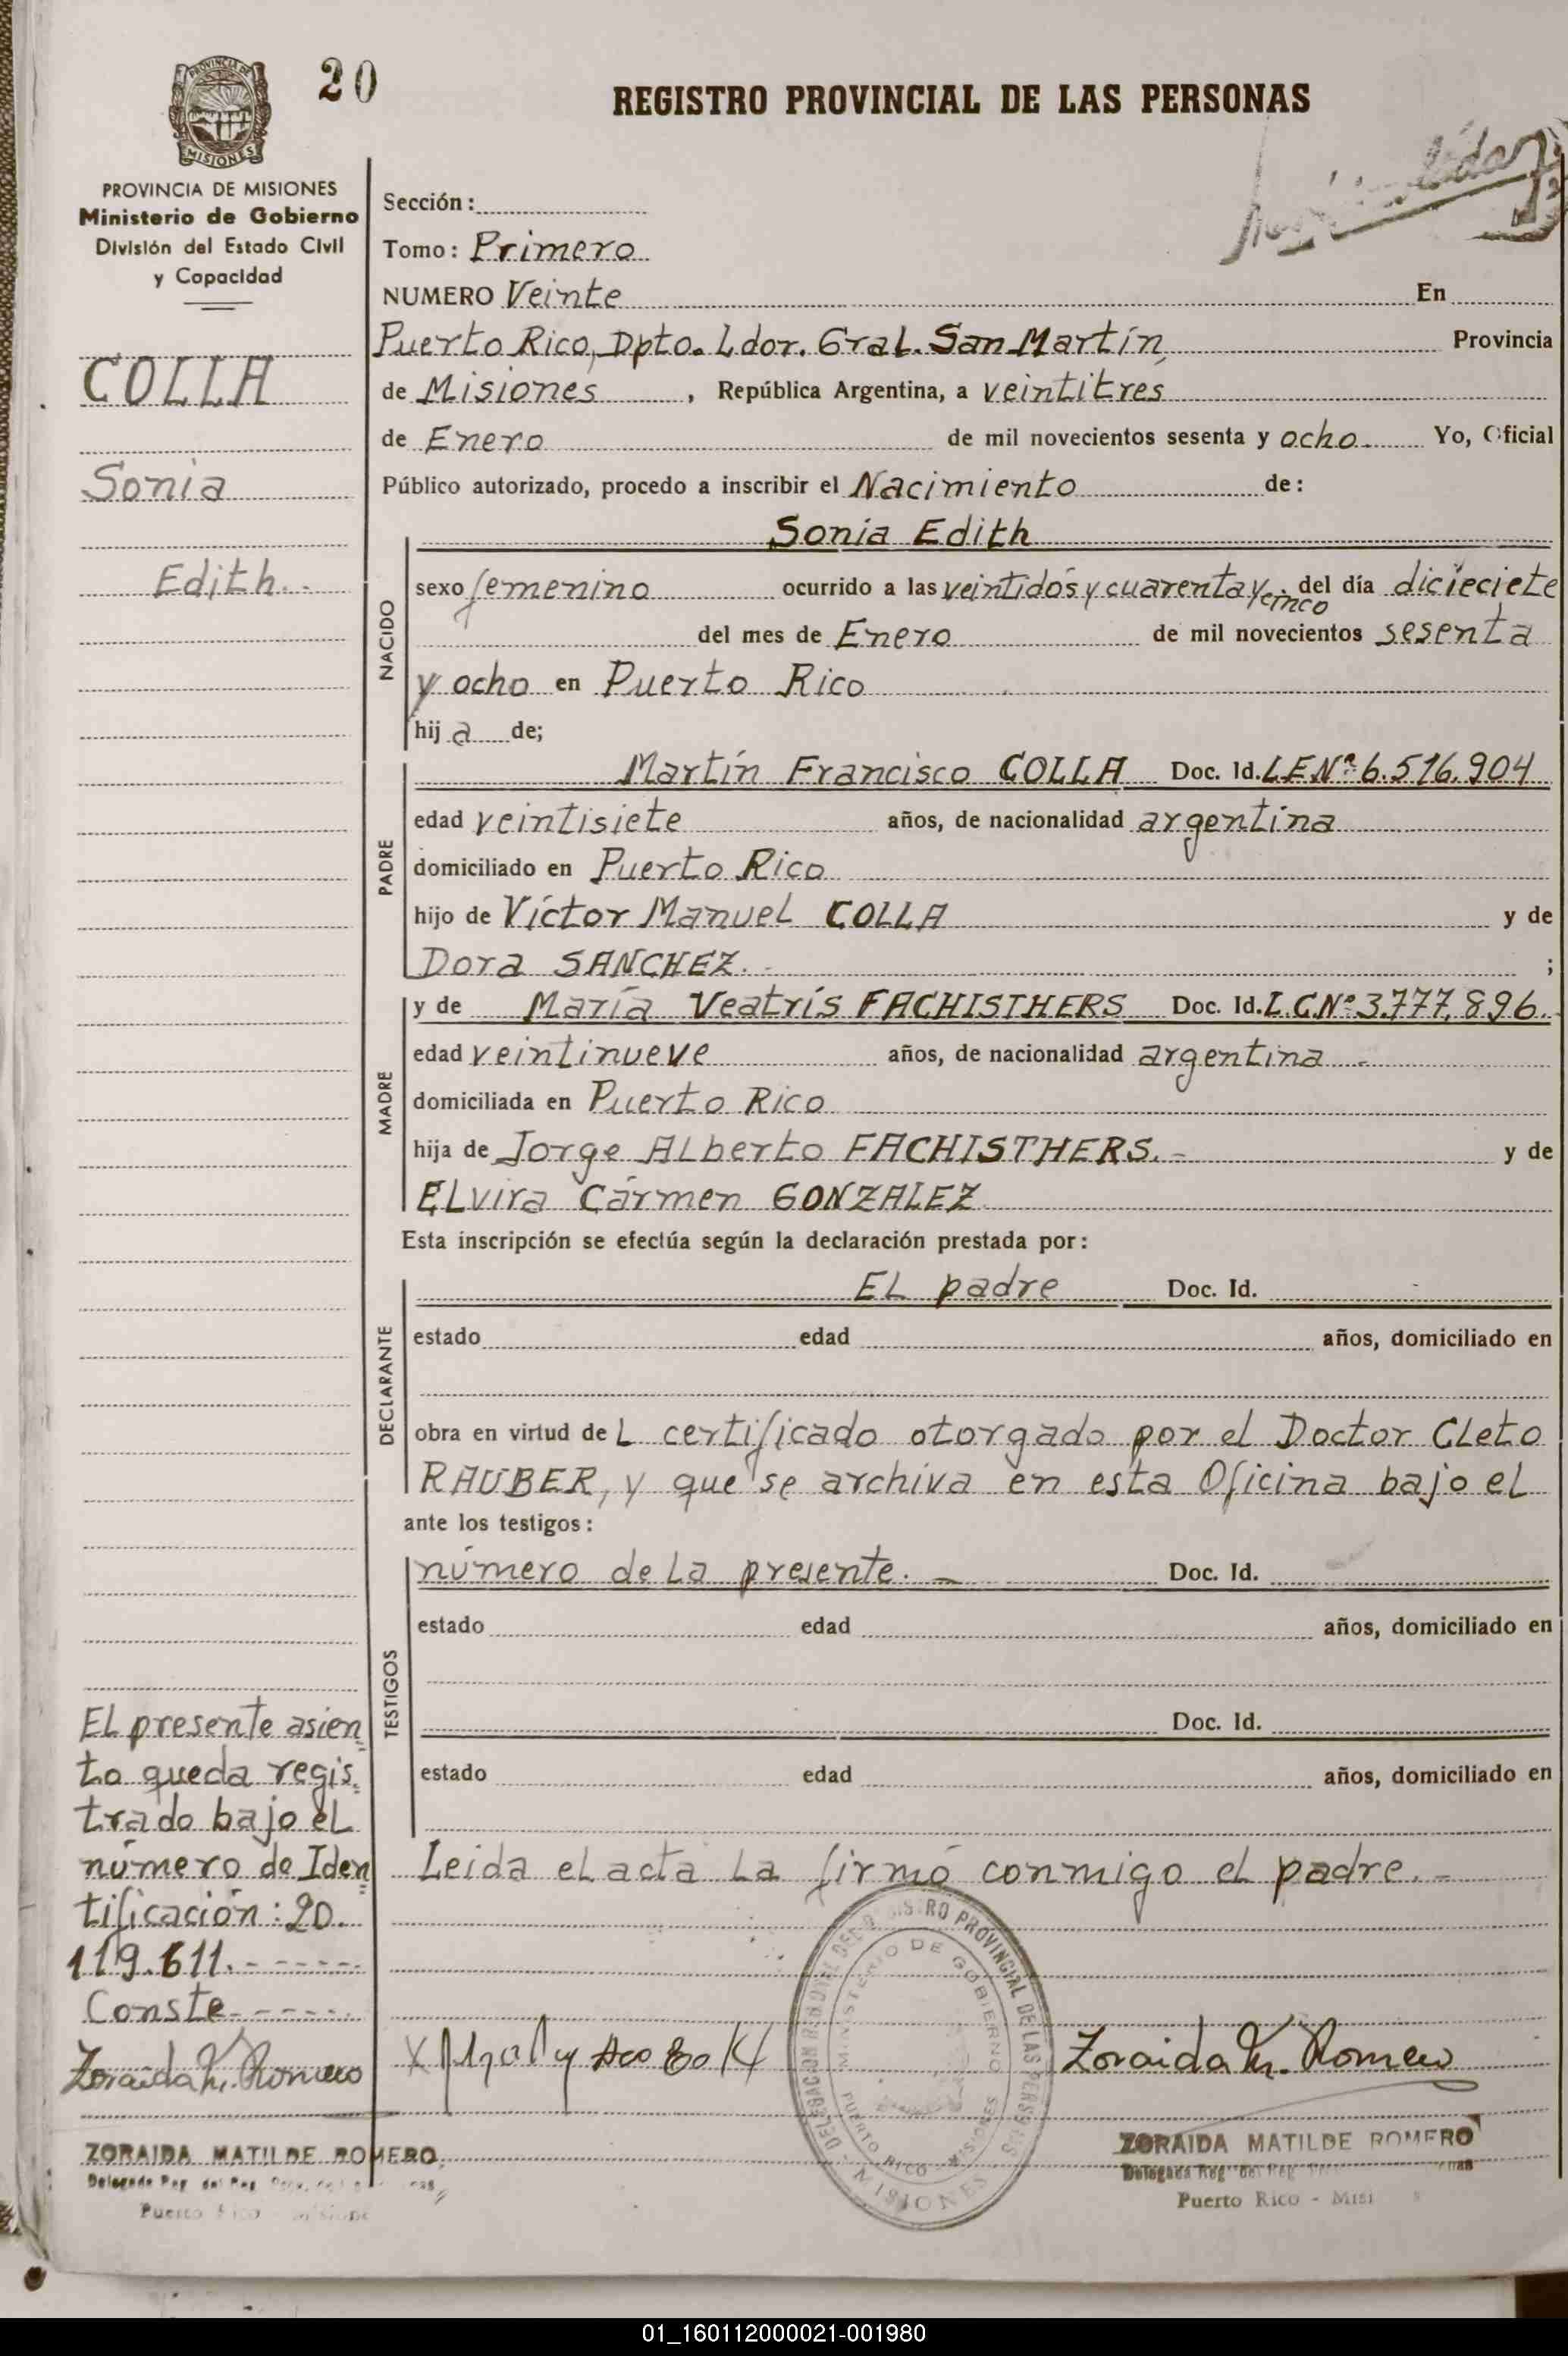 20
REGISTRO PROVINCIAL DE LAS PERSONAS
PROVINCIA DE
MISIONES
PROVINCIA DE MISIONES
Ministerio de Gobierno
División del Estado Civil
y Capacidad
COLLA
Sonia
Edith.-
Sección:
Tomo: Primero
NUMERO Veinte En
Puerto Rico, Dpto. Ldor. Gral. San Martín, Provincia
de Misiones, República Argentina, a veintitrés
de Enero de mil novecientos sesenta y ocho. Yo, Oficial
Público autorizado, procedo a inscribir el Nacimiento de:
Sonia Edith
NACIDO
sexo femenino ocurrido a las veintidós y cuarenta y cinco del día dicieciete
del mes de Enero de mil novecientos sesenta
y ocho en Puerto Rico
hija de;
PADRE
Martín Francisco COLLA Doc. Id. L.E.Nº 6.516.904
edad veintisiete años, de nacionalidad argentina
domiciliado en Puerto Rico
hijo de Víctor Manuel COLLA y de
Dora SANCHEZ.- ;
MADRE
y de María Veatrís FACHISTHERS Doc. Id. L.C.Nº 3.777.896.
edad veintinueve años, de nacionalidad argentina -
domiciliada en Puerto Rico
hija de Jorge Alberto FACHISTHERS.- y de
ELvira Cármen GONZALEZ
Esta inscripción se efectúa según la declaración prestada por:
DECLARANTE
EL padre Doc. Id. -
estado edad años, domiciliado en
obra en virtud de L certificado otorgado por el Doctor Cleto
RAUBER, y que se archiva en esta Oficina bajo el
ante los testigos:
TESTIGOS
número de La presente.- Doc. Id.
estado edad años, domiciliado en
Doc. Id.
estado edad años, domiciliado en
Leida el acta La firmó conmigo el padre.-
El presente asien
to queda regis
trado bajo el
número de Iden
tificación: 20.
119.611.------
Conste------
Zoraida M. Romero
ZORAIDA MATILDE ROMERO
Puerto Rico
REGISTRO PROVINCIAL DE LAS PERSONAS
MINISTERIO DE GOBIERNO
PUERTO RICO - MISIONES
MISIONES
Zoraida M. Romero
ZORAIDA MATILDE ROMERO
Puerto Rico - Misi
01_160112000021-001980